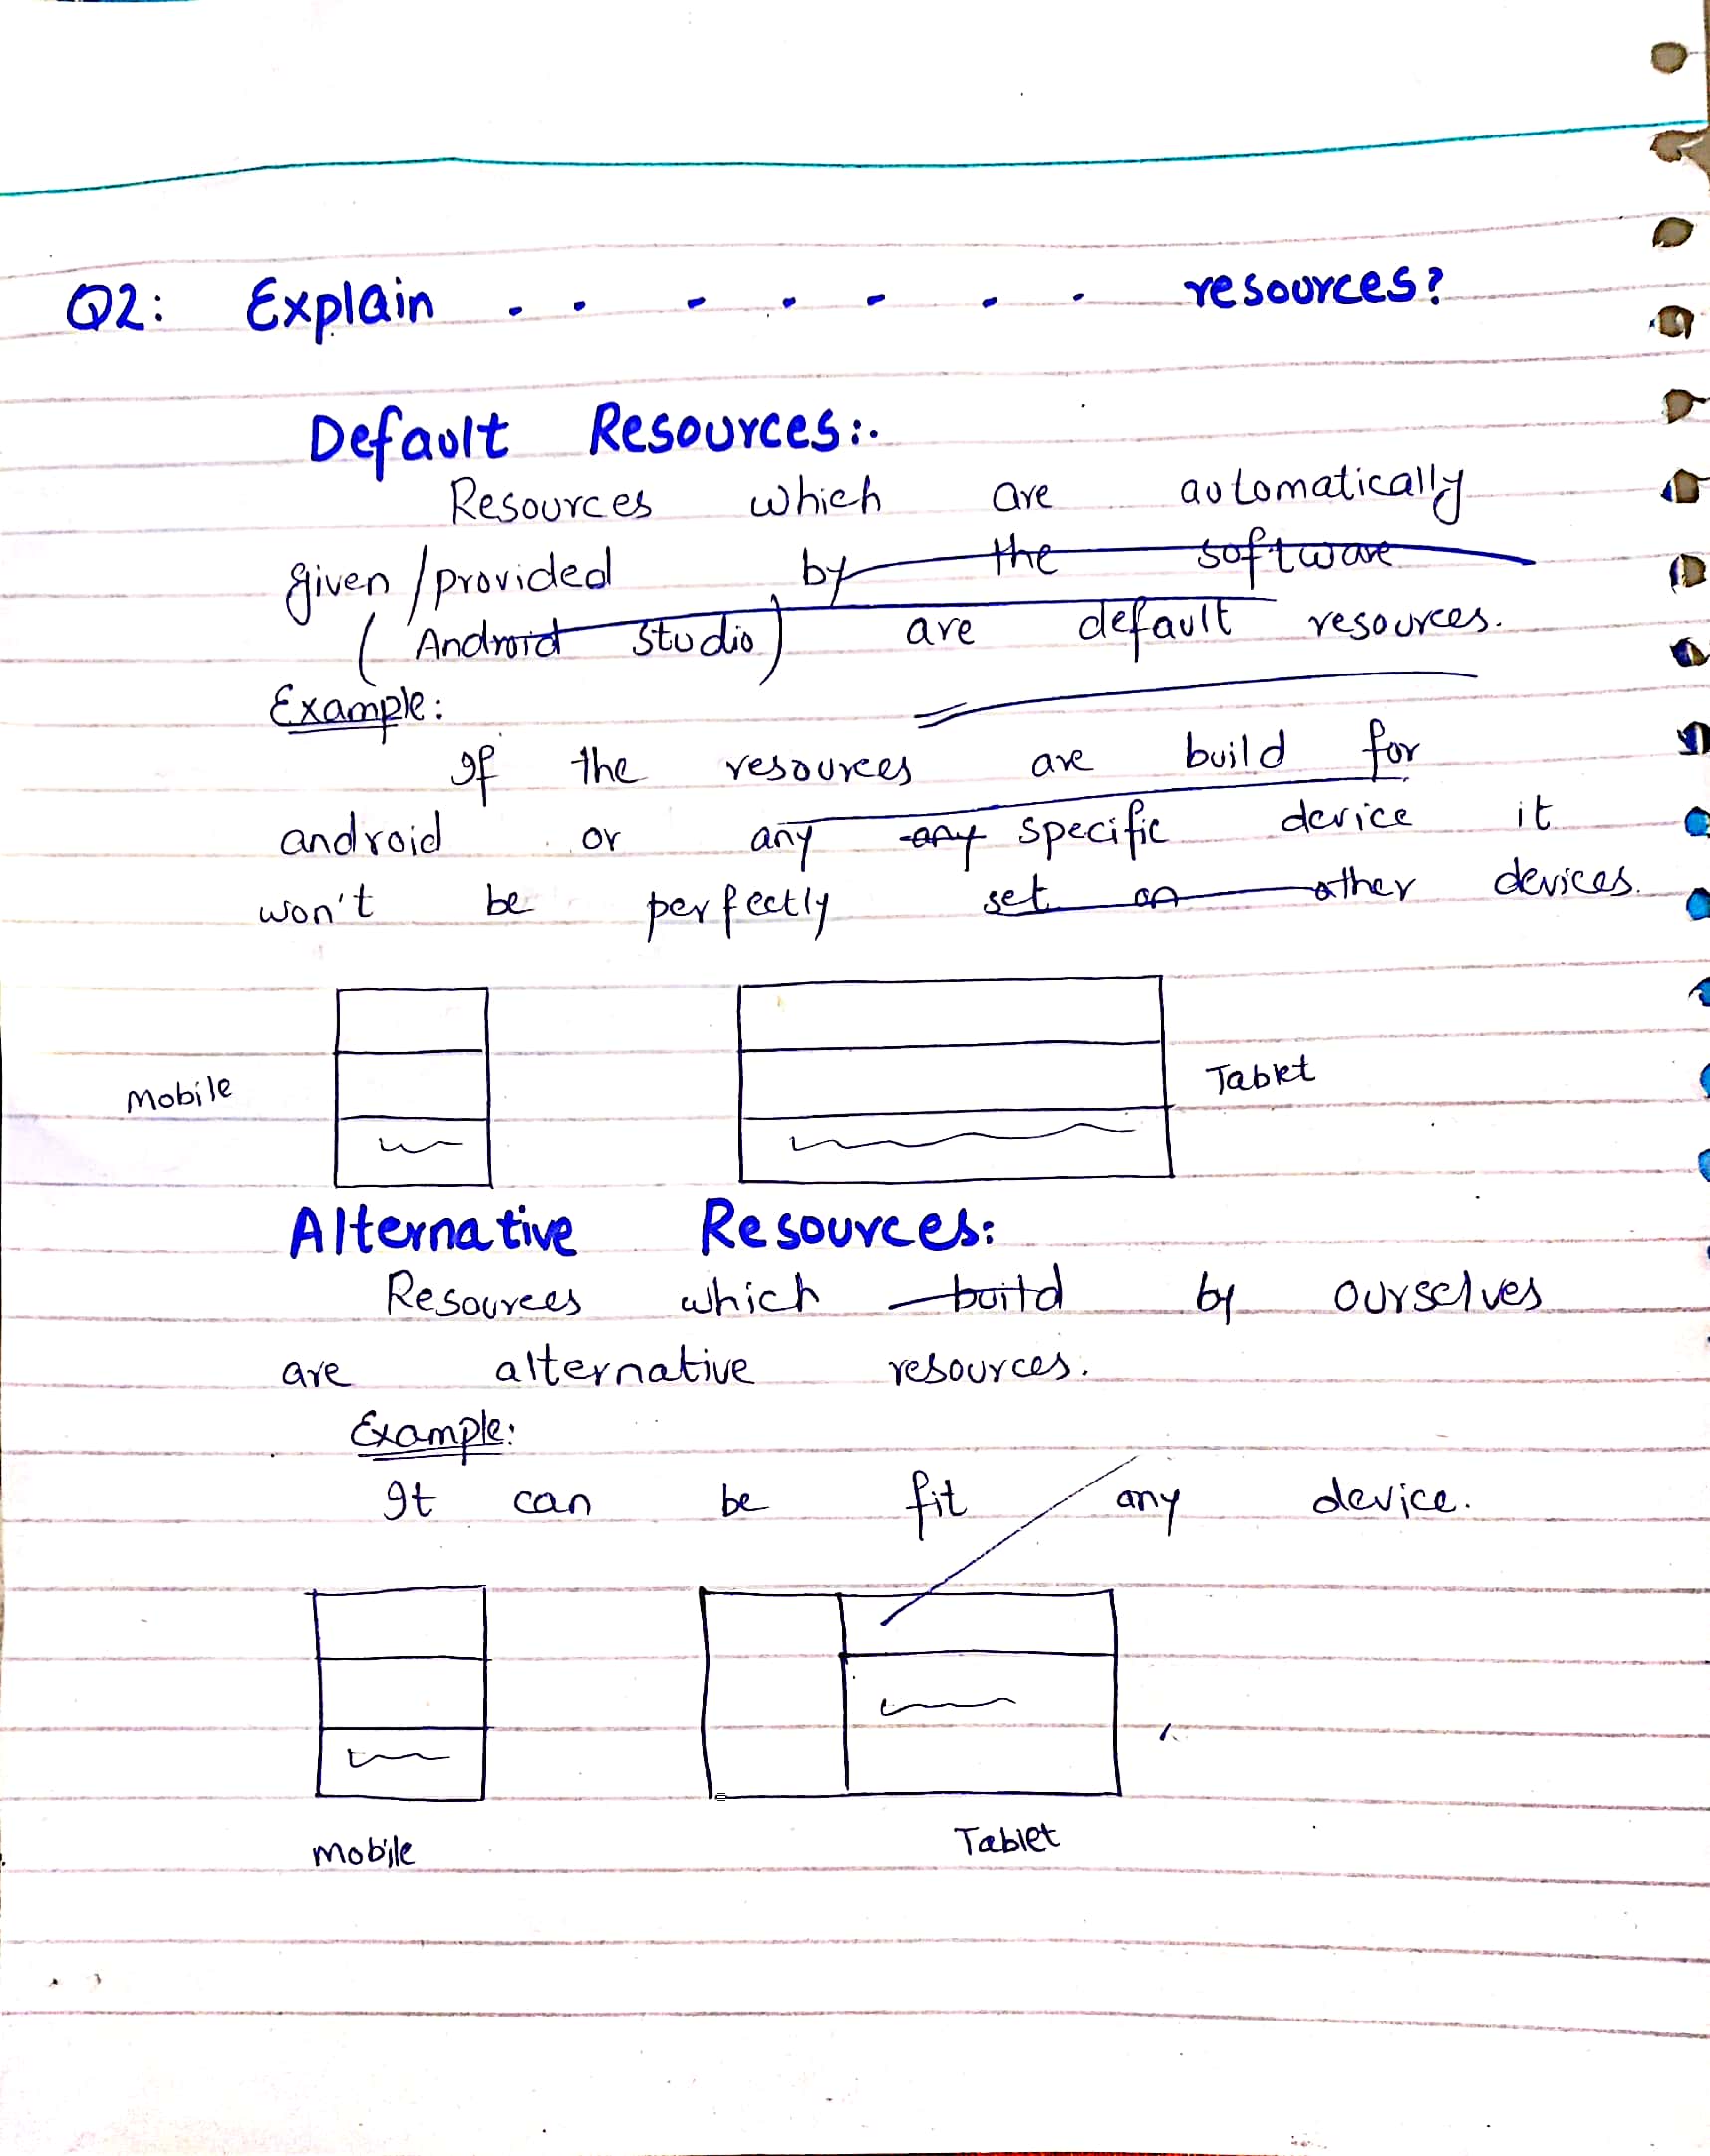 Q2: Explain . . - - - - - resources?
Default Resources:.
Resources which are automatically
given/provided by the software
(Android Studio) are default resources.
Example:
If the resources are build for
android or any any specific device it
won't be perfectly set on other devices.
Mobile
Tablet
Alternative Resources:
Resources which build by ourselves
are alternative resources.
Example:
It can be fit any device.
Mobile
Tablet